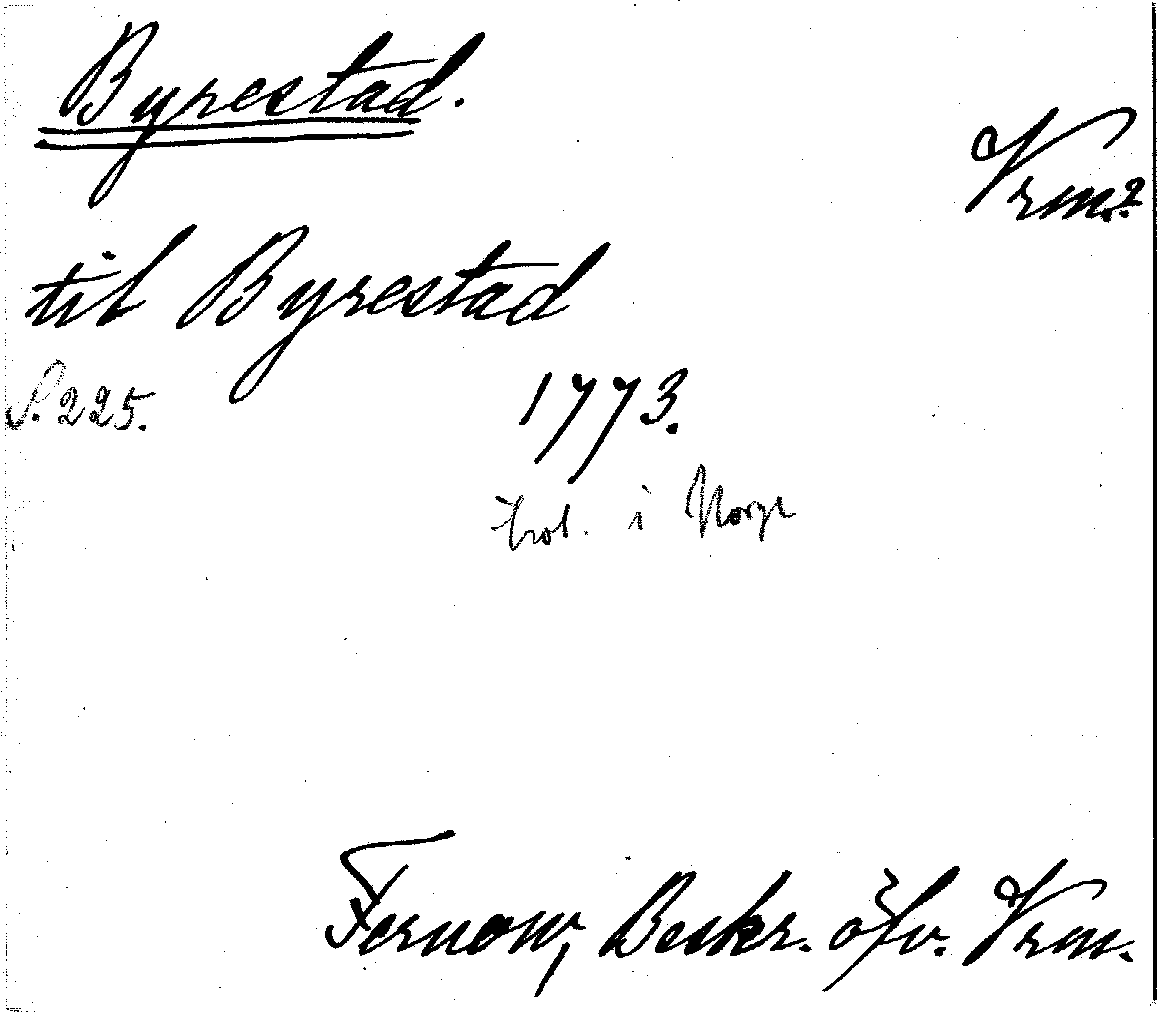 Byrestad.
Vrm.?
til Byrestad
S. 225.
1773.
trol. i Norge
Fernow, Beskr. öfv. Vrm.